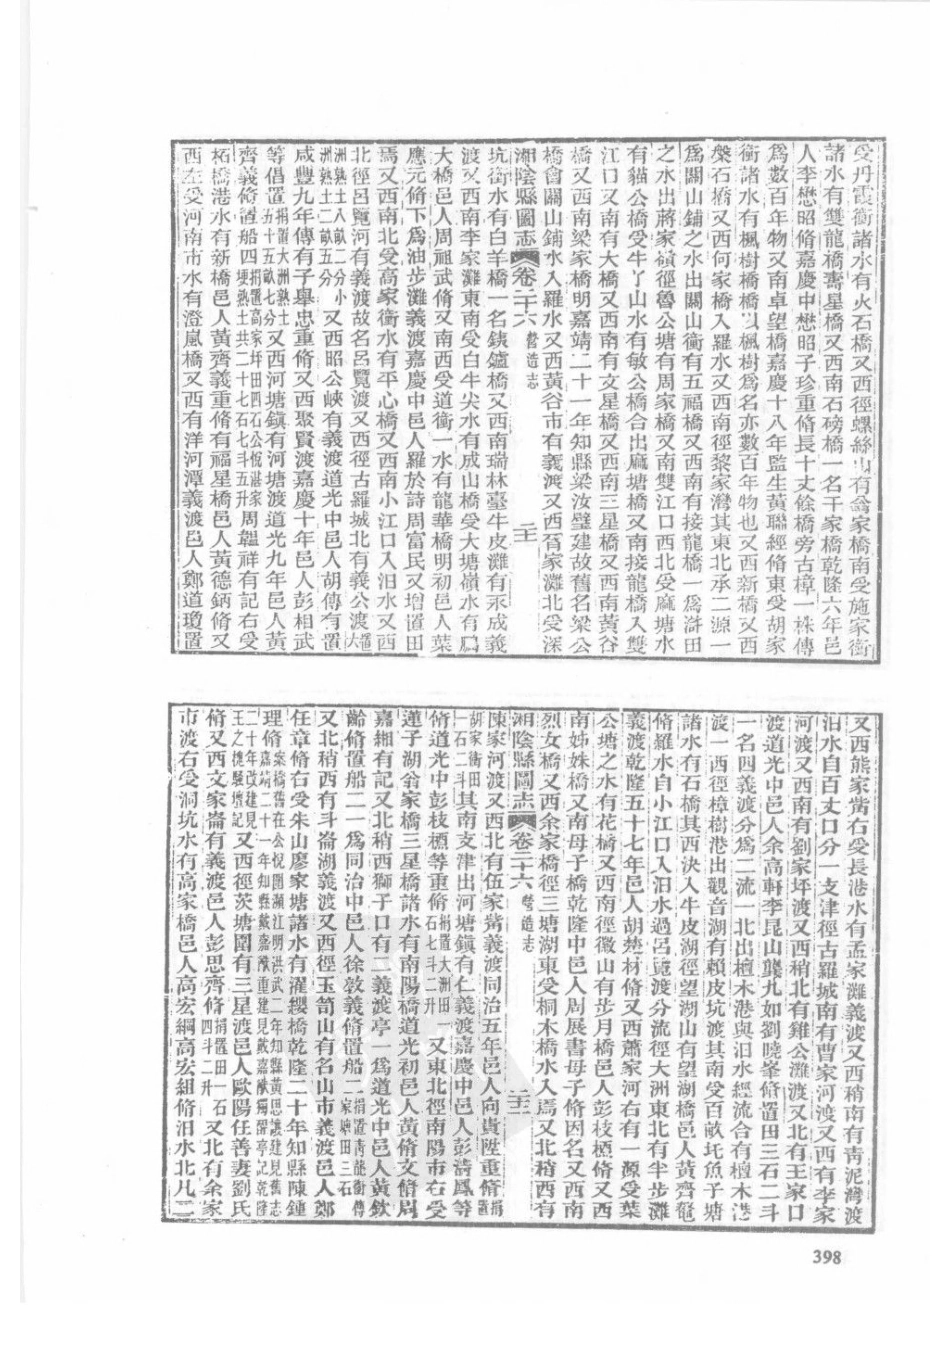 受丹霞衝諸水有火石橋又西徑螺絲山有翕家橋南受施家衝
諸水有雙龍橋壽星橋又西南石磅橋一名干家橋乾隆六年邑
人李懋昭脩嘉慶中懋昭子珍重脩長十丈餘橋旁古樟一株傳
爲數百年物又南卓望橋嘉慶十八年監生黃聯經脩東受胡家
衝諸水有楓樹橋橋以楓樹爲名亦數百年物也又西新橋又西
槃石橋又西何家橋入羅水又西南徑黎家灣其東北承二源一
爲關山鋪之水出關山衝有五福橋又西南有接龍橋一爲滸田
之水出蔣家嶺徑魯公塘有周家橋又南雙江口西北受麻塘水
有貓公橋受牛丫山水有敏公橋合出麻塘橋又南接龍橋入雙
江口又南有大橋又西南有文星橋又西南三星橋又西南蒿谷
橋又西南梁家橋明嘉靖二十一年知縣梁汝璧建故舊名梁公
橋會關山鋪水入羅水又西黃谷市有義渡又西胥家灘北受深
湘陰縣圖志 卷二十六 營造志 二十
坑衝水有白羊橋一名鐵鑪橋又西南瑞林臺牛皮灘有永成義
渡又西南李家灘東南受白牛尖水有成山橋受大塘嶺水有
大橋邑人周祖武脩又南西受道衝一水有龍華橋明初邑人葉
應元脩下爲油步灘義渡嘉慶中邑人羅於詩周富民又增置田
焉又西南北受高家衝水有平心橋又西南小江口入汨水又西
北徑呂覽河有義渡故名呂覽渡又西徑古羅城北有義公渡 置大
洲熟土八畝二分小洲熟土二畝五分 又西昭公峽有義渡道光中邑人胡傳有置
咸豐九年傳有子舉忠重脩又西聚賢渡嘉慶十年邑人彭相武
等倡置 捐置大洲熟土五十五畝七分 又西河塘鎮有河塘渡道光九年邑人黃
齊義脩置船四 捐置高家坪田四石公悅諶家埂熟土共二十七石七斗五升 周韞祥有記右受
柘橋港水有新橋邑人黃齊義重脩有福星橋邑人黃德鈵脩又
西左受河南市水有澄嵐橋又西有洋河潭義渡邑人鄭道瓊置
又西熊家嵴右受長港水有孟家灘義渡又西稍南有靑泥灣渡
汨水自百丈口分一支津徑古羅城南有曹家河渡又西有李家
河渡又西南有劉家坪渡又西稍北有雞公灘渡又北有王家口
渡道光中邑人余高軒李昆山龔九如劉曉峯脩置田三石二斗
一名四義渡分爲二流一北出檀木港與汨水經流合有檀木港
渡一西徑樟樹港出觀音湖有賴皮坑渡其南受百畝圫魚子塘
諸水有石橋其西決入牛皮湖徑望湖山有望湖橋邑人黃齊
脩羅水自小江口入汨水過呂覽渡分流徑大洲東北有半步灘
義渡乾隆五十七年邑人胡楚材脩又西蕭家河右有一源受葉
公塘之水有花橋又西南徑徽山有步月橋邑人彭枝橒脩又西
南姊妹橋又南母子橋乾隆中邑人周展書母子脩因名又西南
烈女橋又西余家橋徑三塘湖東受桐木橋水入焉又北稍西有
湘陰縣圖志 卷二十六 營造志 二十一
陳家河渡又西北有伍家嵴義渡同治五年邑人向貴陞重脩 捐置
胡家衝田一石二斗 其南支津出河塘鎮有仁義渡嘉慶中邑人彭濤鳳等
脩道光中彭枝橒等重脩 捐置大洲田一石七斗二升 又東北徑南陽市右受
蓮子湖翁家橋三星橋諸水有南陽橋道光初邑人黃脩文脩周
嘉緗有記又北稍西獅子口有二義渡亭一爲道光中邑人黃欽
齡脩置船二一爲同治中邑人徐敎義脩置船二 捐置靑龍衝傳家塘田三石
又北稍西有斗崙湖義渡又西徑玉笥山有名山市義渡邑人鄭
任章脩右受朱山廖家塘諸水有濯纓橋乾隆二十年知縣陳鍾
理脩 又西徑茨塘圍有三星渡邑人歐陽任善妻劉氏
脩又西文家崙有義渡邑人彭思齊脩 捐置田一石四斗二升 又北有余家
市渡右受洞坑水有高家橋邑人高宏綱高宏組脩汨水北凡二
398